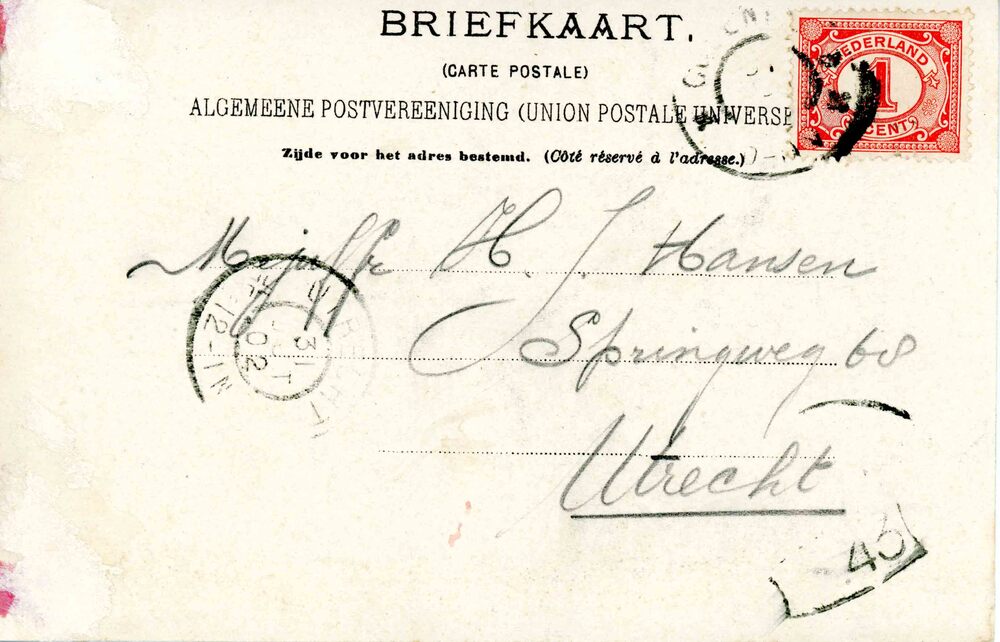 BRIEFKAART.
(CARTE POSTALE)
ALGEMEENE POSTVEREENIGING (UNION POSTALE UNIVERSE
Zijde voor het adres bestemd. (Côté réservé à l'adresse.)
NEDERLAND
1
CENT
Mejuffr H. J. Hansen
Springweg 68
Utrecht
UTRECHT
31
02
12-1N
46